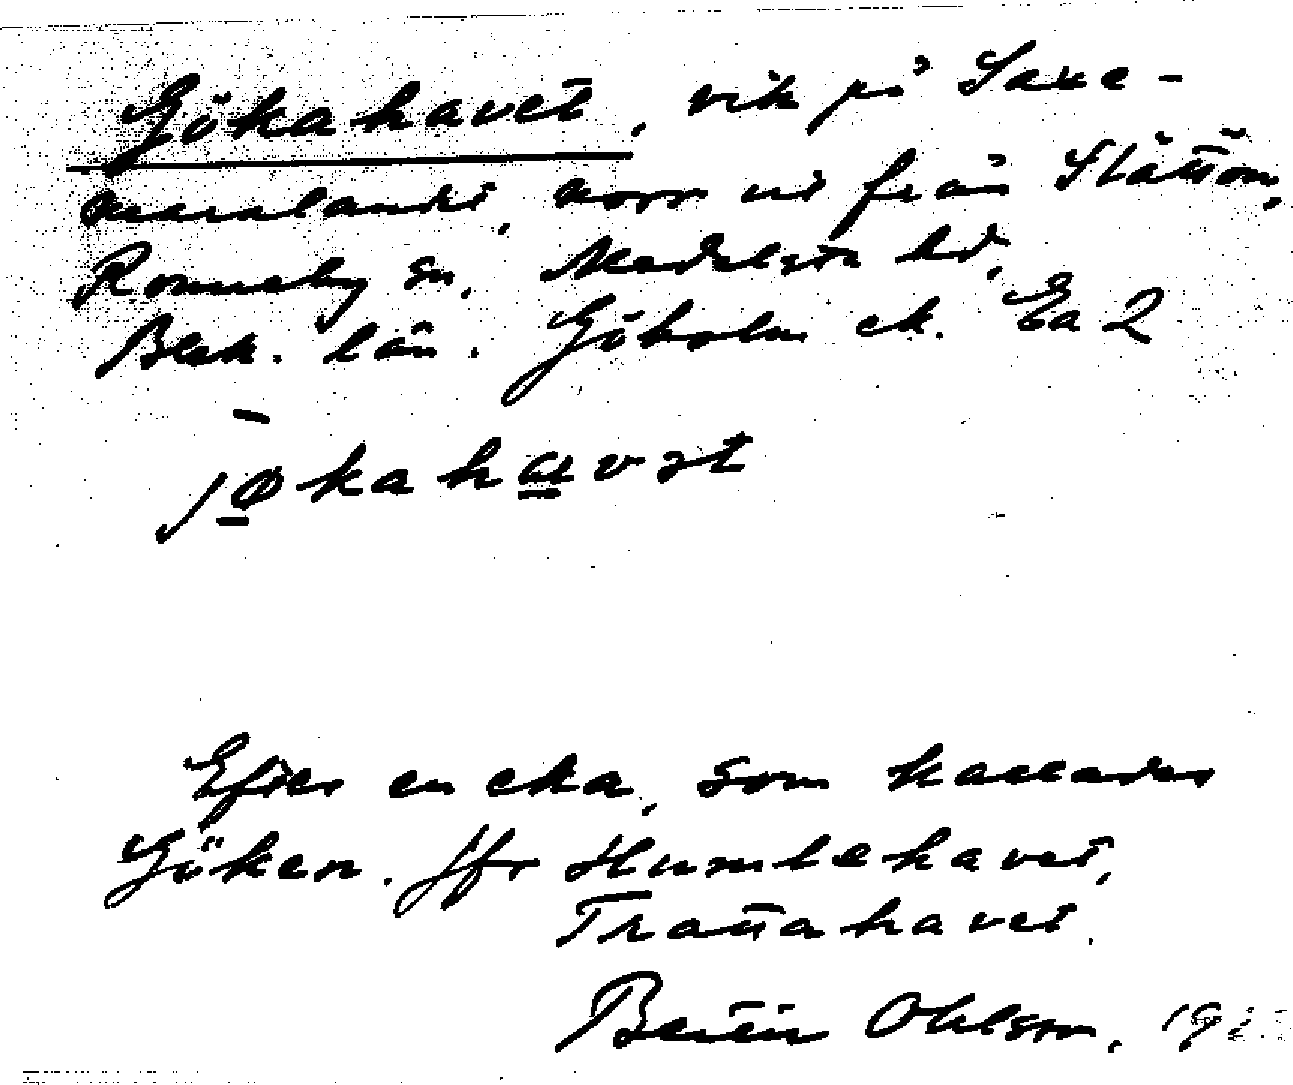 Gökahavet, vik på Saxe-
maralandet, norr ut från Slättön,
Ronneby sn, Medelsta hd,
Blek. län. Göholm ek. Ea 2
jøkahavət
Efter en eka, som kallades
Göken. Jfr Humlehavet,
Trattahavet.
Bertil Ohlson, 19